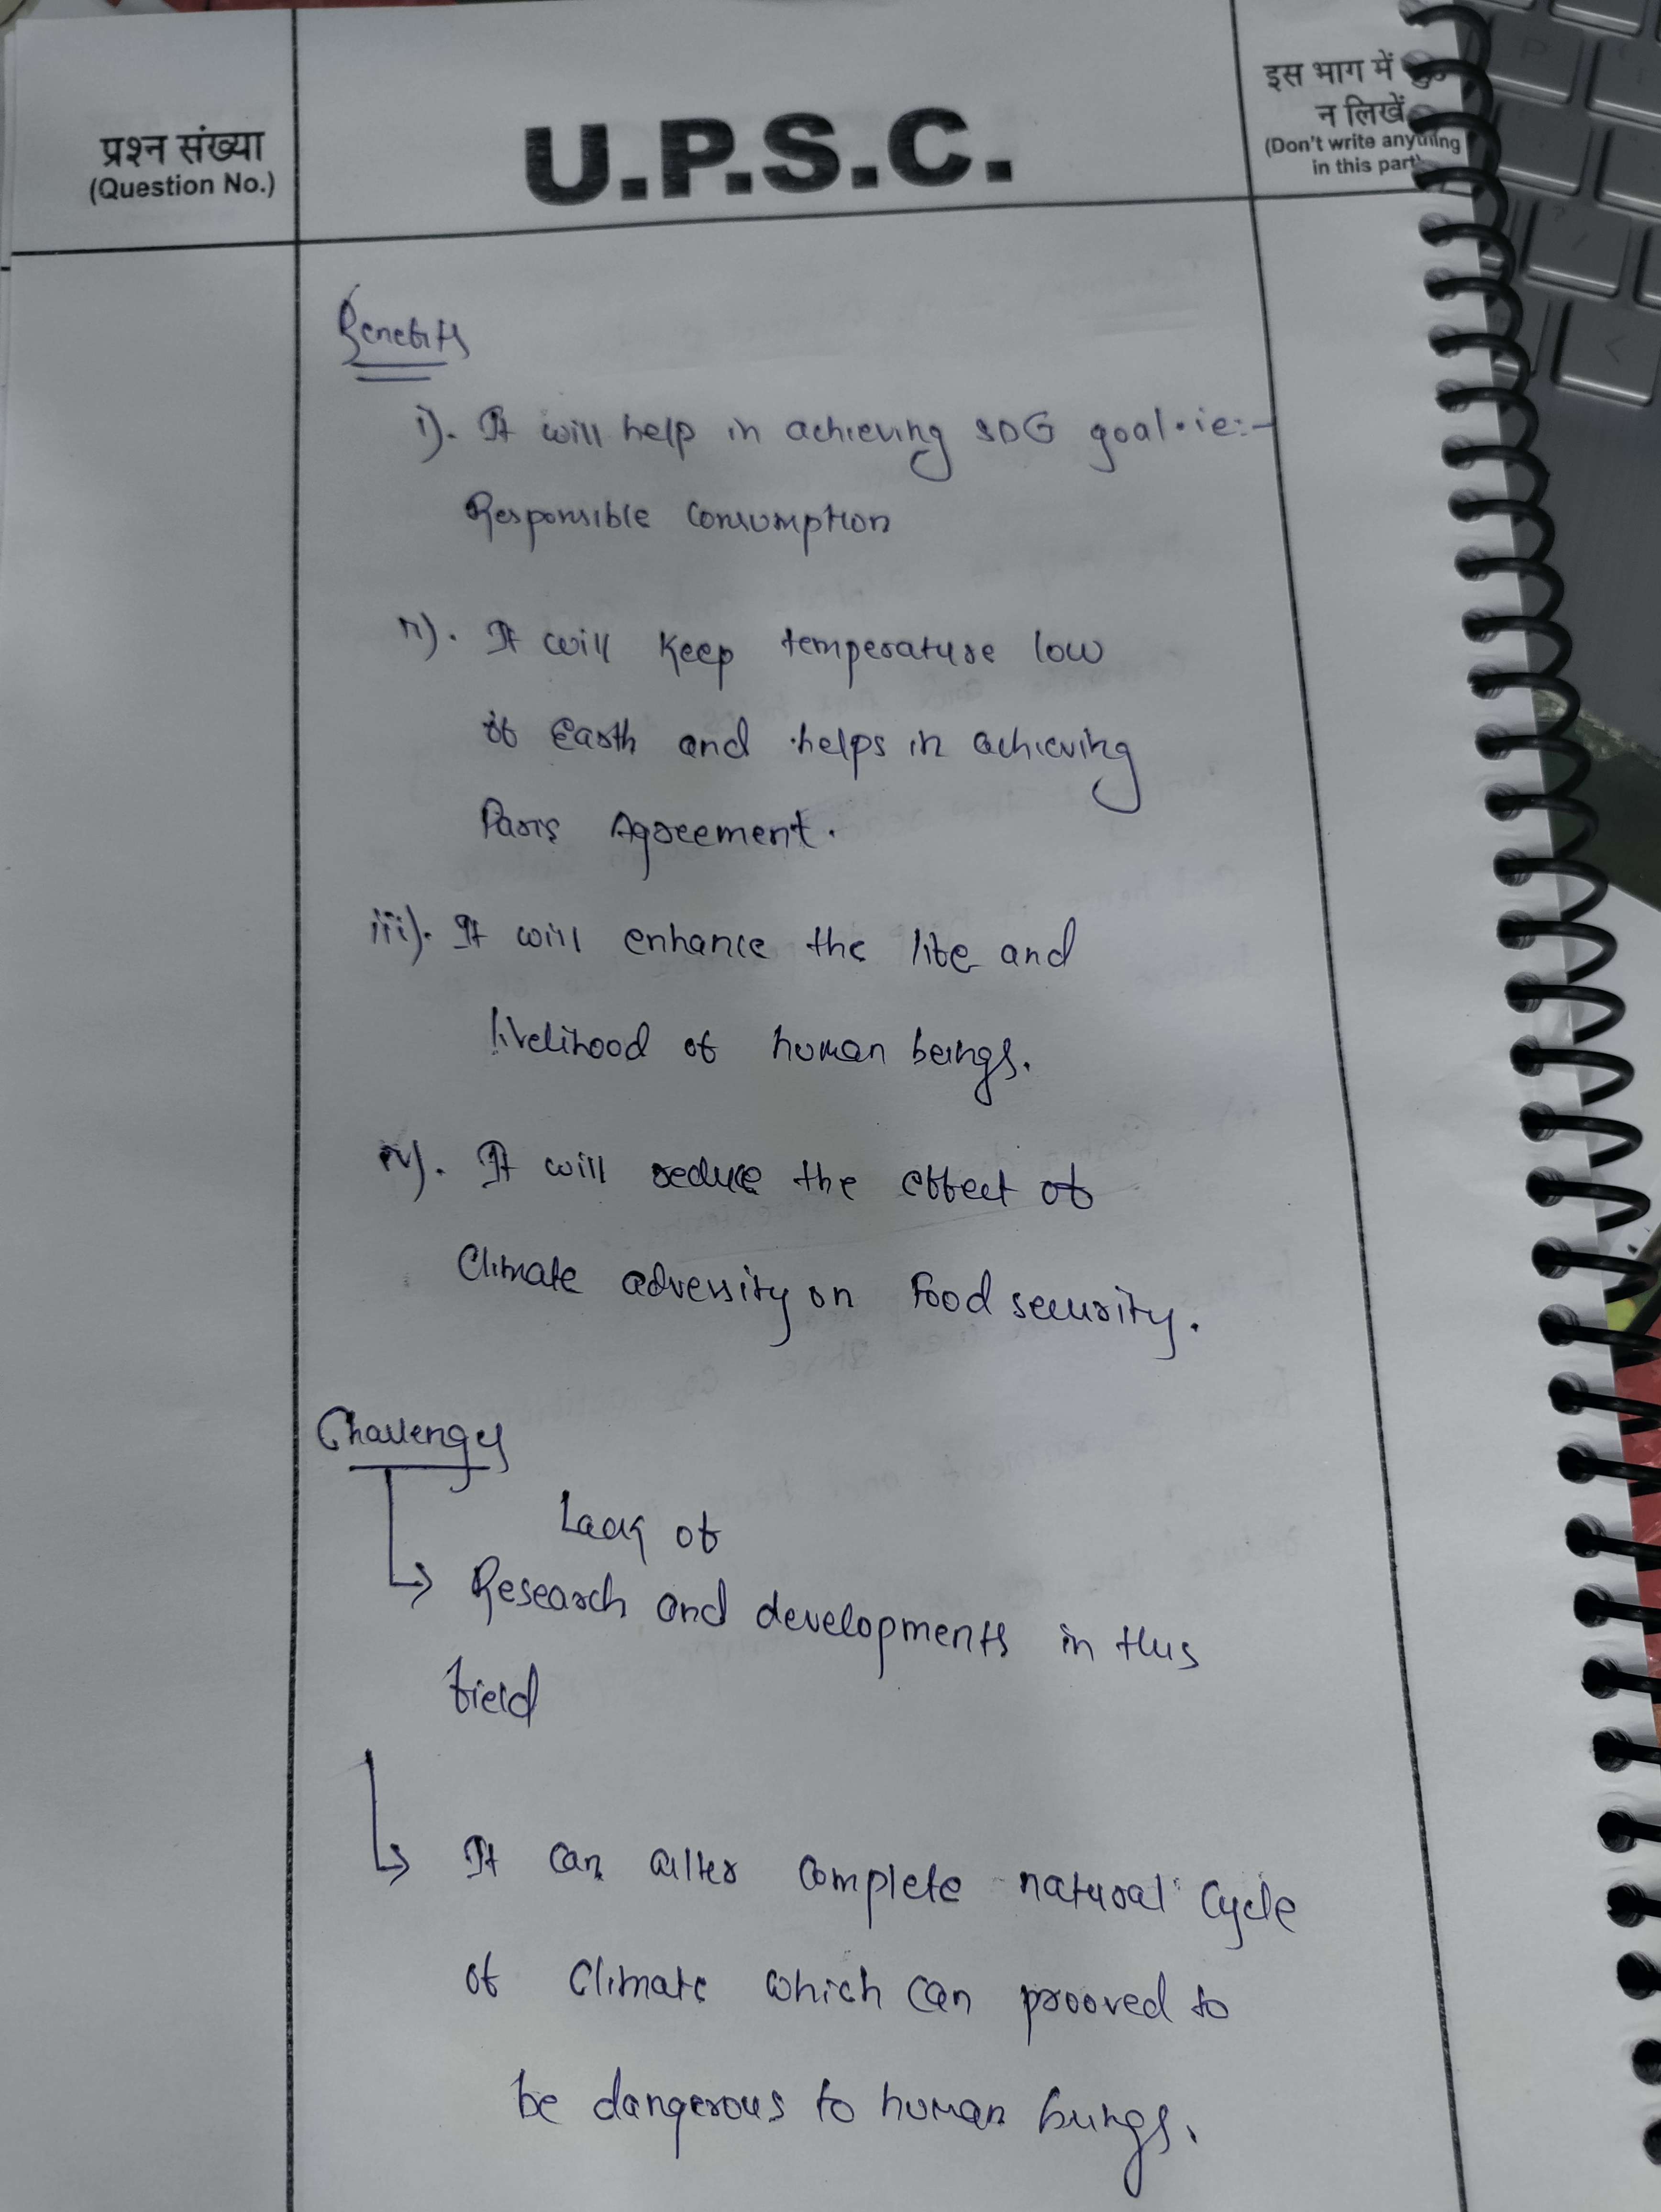 प्रश्न संख्या
(Question No.)
U.P.S.C.
इस भाग में
न लिखें
(Don't write anything
in this part)
Benefits
i). It will help in achieving SDG goal. ie:-
Responsible Consumption
ii). It will keep temperature low
of Earth and helps in achieving
Paris Agreement.
iii). It will enhance the life and
livelihood of human beings.
iv). It will reduce the effect of
Climate adversity on Food security.
Challenges
Lack of
→ Research and developments in this
field
→ It can alter complete natural cycle
of Climate which can prooved to
be dangerous to human beings.